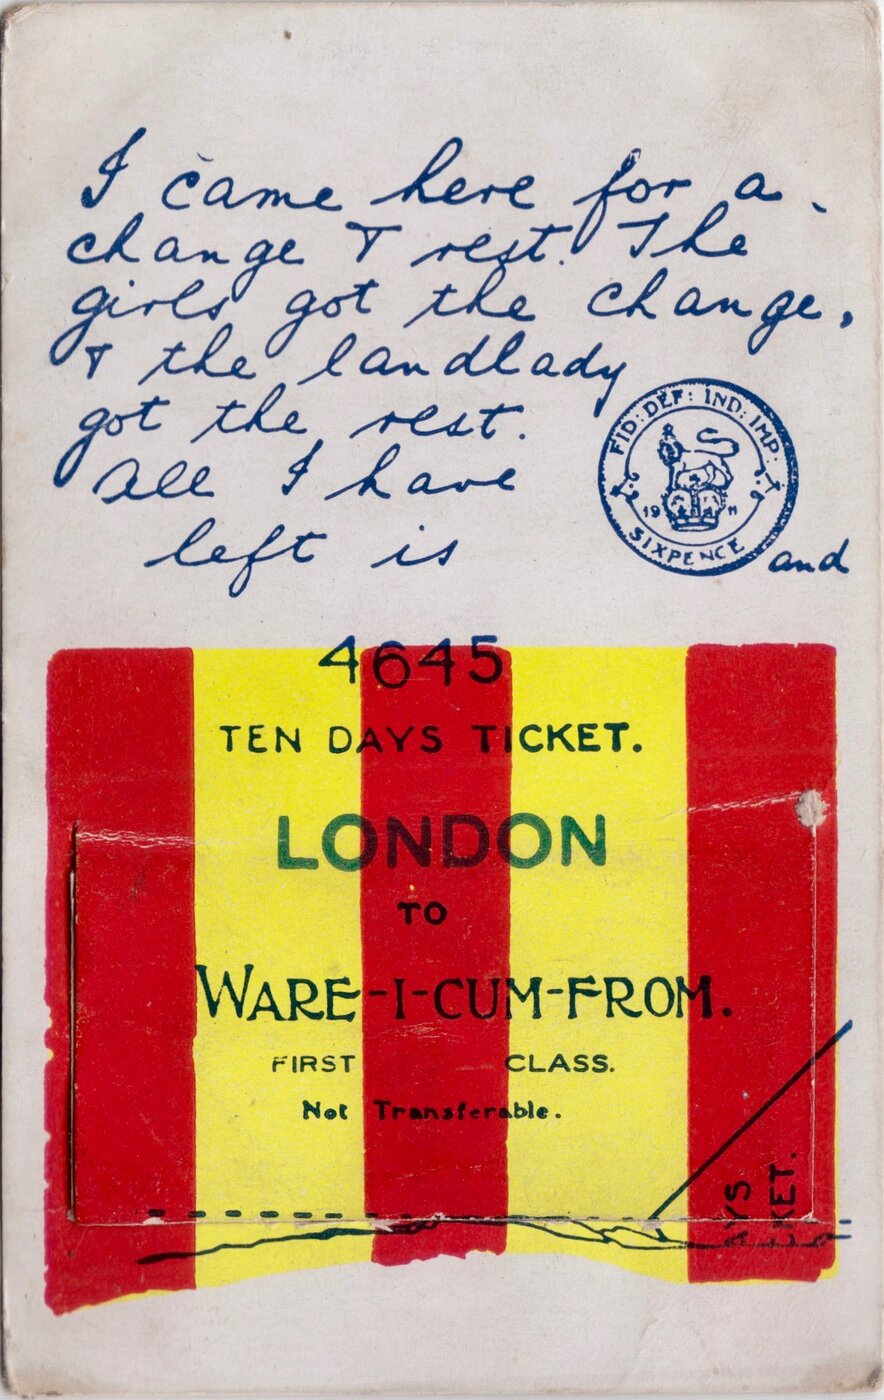 I came here for a
change & rest. The
girls got the change,
& the landlady
got the rest.
All I have
left is
FID: DEF: IND: IMP:
19 11
SIXPENCE
and
4645
TEN DAYS TICKET.
LONDON
TO
WARE-I-CUM-FROM.
FIRST CLASS.
Not Transferable.
AYS
KET.